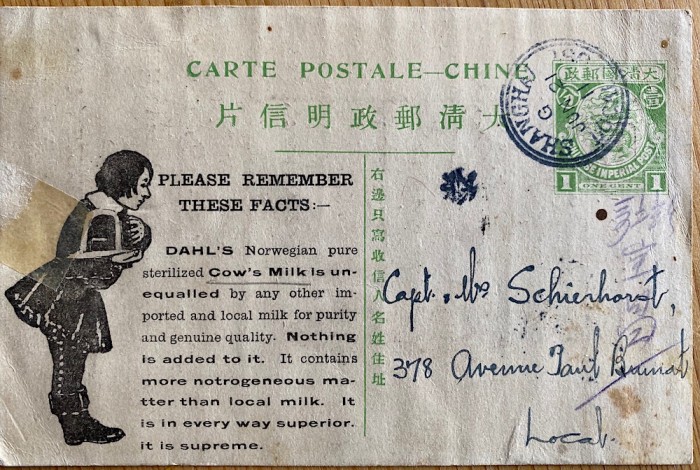 CARTE POSTALE—CHINE
大清郵政明信片
大清國郵政
壹
CHINESE IMPERIAL POST
1 ONE CENT 1
SHANGHAI
LOCAL POST
PLEASE REMEMBER
THESE FACTS:—
DAHL'S Norwegian pure
sterilized Cow's Milk is un-
equalled by any other im-
ported and local milk for purity
and genuine quality. Nothing
is added to it. It contains
more notrogeneous ma-
tter than local milk. It
is in every way superior.
it is supreme.
右邊只寫收信人名姓住址
Capt. Schierhorst,
378 Avenue Paul Brunat
Local.